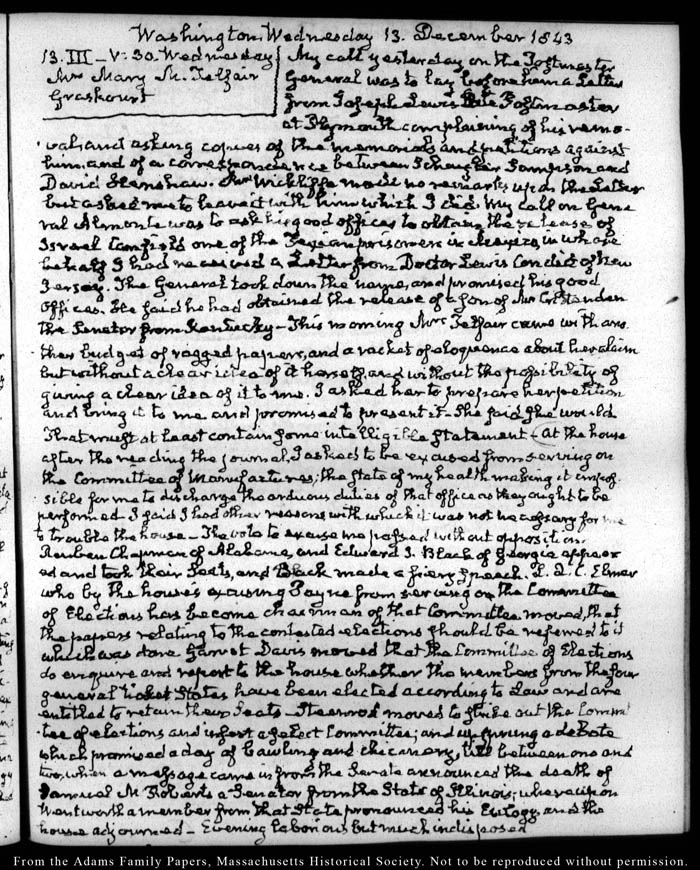 Washington Wednesday 13. December 1843
13. III–V:30. Wednesday
Mrs Mary M. Telfair
Graskourt
My call yesterday on the Postmaster
General was to lay before him a Letter
from Joseph Lewis late Postmaster
at Plymouth complaining of his remo-
val and asking copies of the memorials and petitions against
him, and of a correspondence between Schuyler Sampson and
David Henshaw. Mr Wickliffe made no remarks upon the Letter
but asked me to leave it with him which I did. My call on Gene
ral Almonte was to ask his good offices to obtain the release of
Israel Canfield one of the Texian prisoners in Mexico, in whose
behalf I had received a Letter from Doctor Lewis Condict of New
Jersey. The General took down the name, and promised his good
Offices. He said he had obtained the release of a son of Mr Crittenden
the Senator from Kentucky – This morning Mrs Telfair came with ano
ther budget of ragged papers, and a racket of eloquence about her claim
but without a clear idea of it herself, and without the possibility of
giving a clear idea of it to me. I asked her to prepare her petition
and bring it to me and promised to present it – She said she would
That must at least contain some intelligible Statement – At the house
after the reading the journal, I asked to be excused from serving on
the Committee of Manufactures; the state of my health making it impos-
sible for me to discharge the arduous duties of that office as they ought to be
performed – I said I had other reasons with which it was not necessary for me
to trouble the house – The vote to excuse me passed without opposition.
Reuben Chapman of Alabama, and Edward J. Black of Georgia appear
ed and took their Seats, and Black made a fiery speech. L. Q. C. Elmer
who by the house's excusing Payne from serving on the Committee
of Elections has become chairman of that Committee moved, that
the papers relating to the contested elections should be referred to it
which was done Garret Davis moved that the Committee of Elections
do enquire and report to the house whether the members from the four
general ticket States have been elected according to Law and are
entitled to retain their Seats – Steenrod moved to strike out the Commit
tee of elections and insert a select Committee; and up sprung a debate
which promised a day of bawling and chicanery, till between one and
two, when a message came in from the Senate announced the death of
Samuel M. Roberts a Senator from the State of Illinois; whereupon
Wentworth a member from that State pronounced his Eulogy and the
house adjourned – Evening laborious but much indisposed
From the Adams Family Papers, Massachusetts Historical Society. Not to be reproduced without permission.